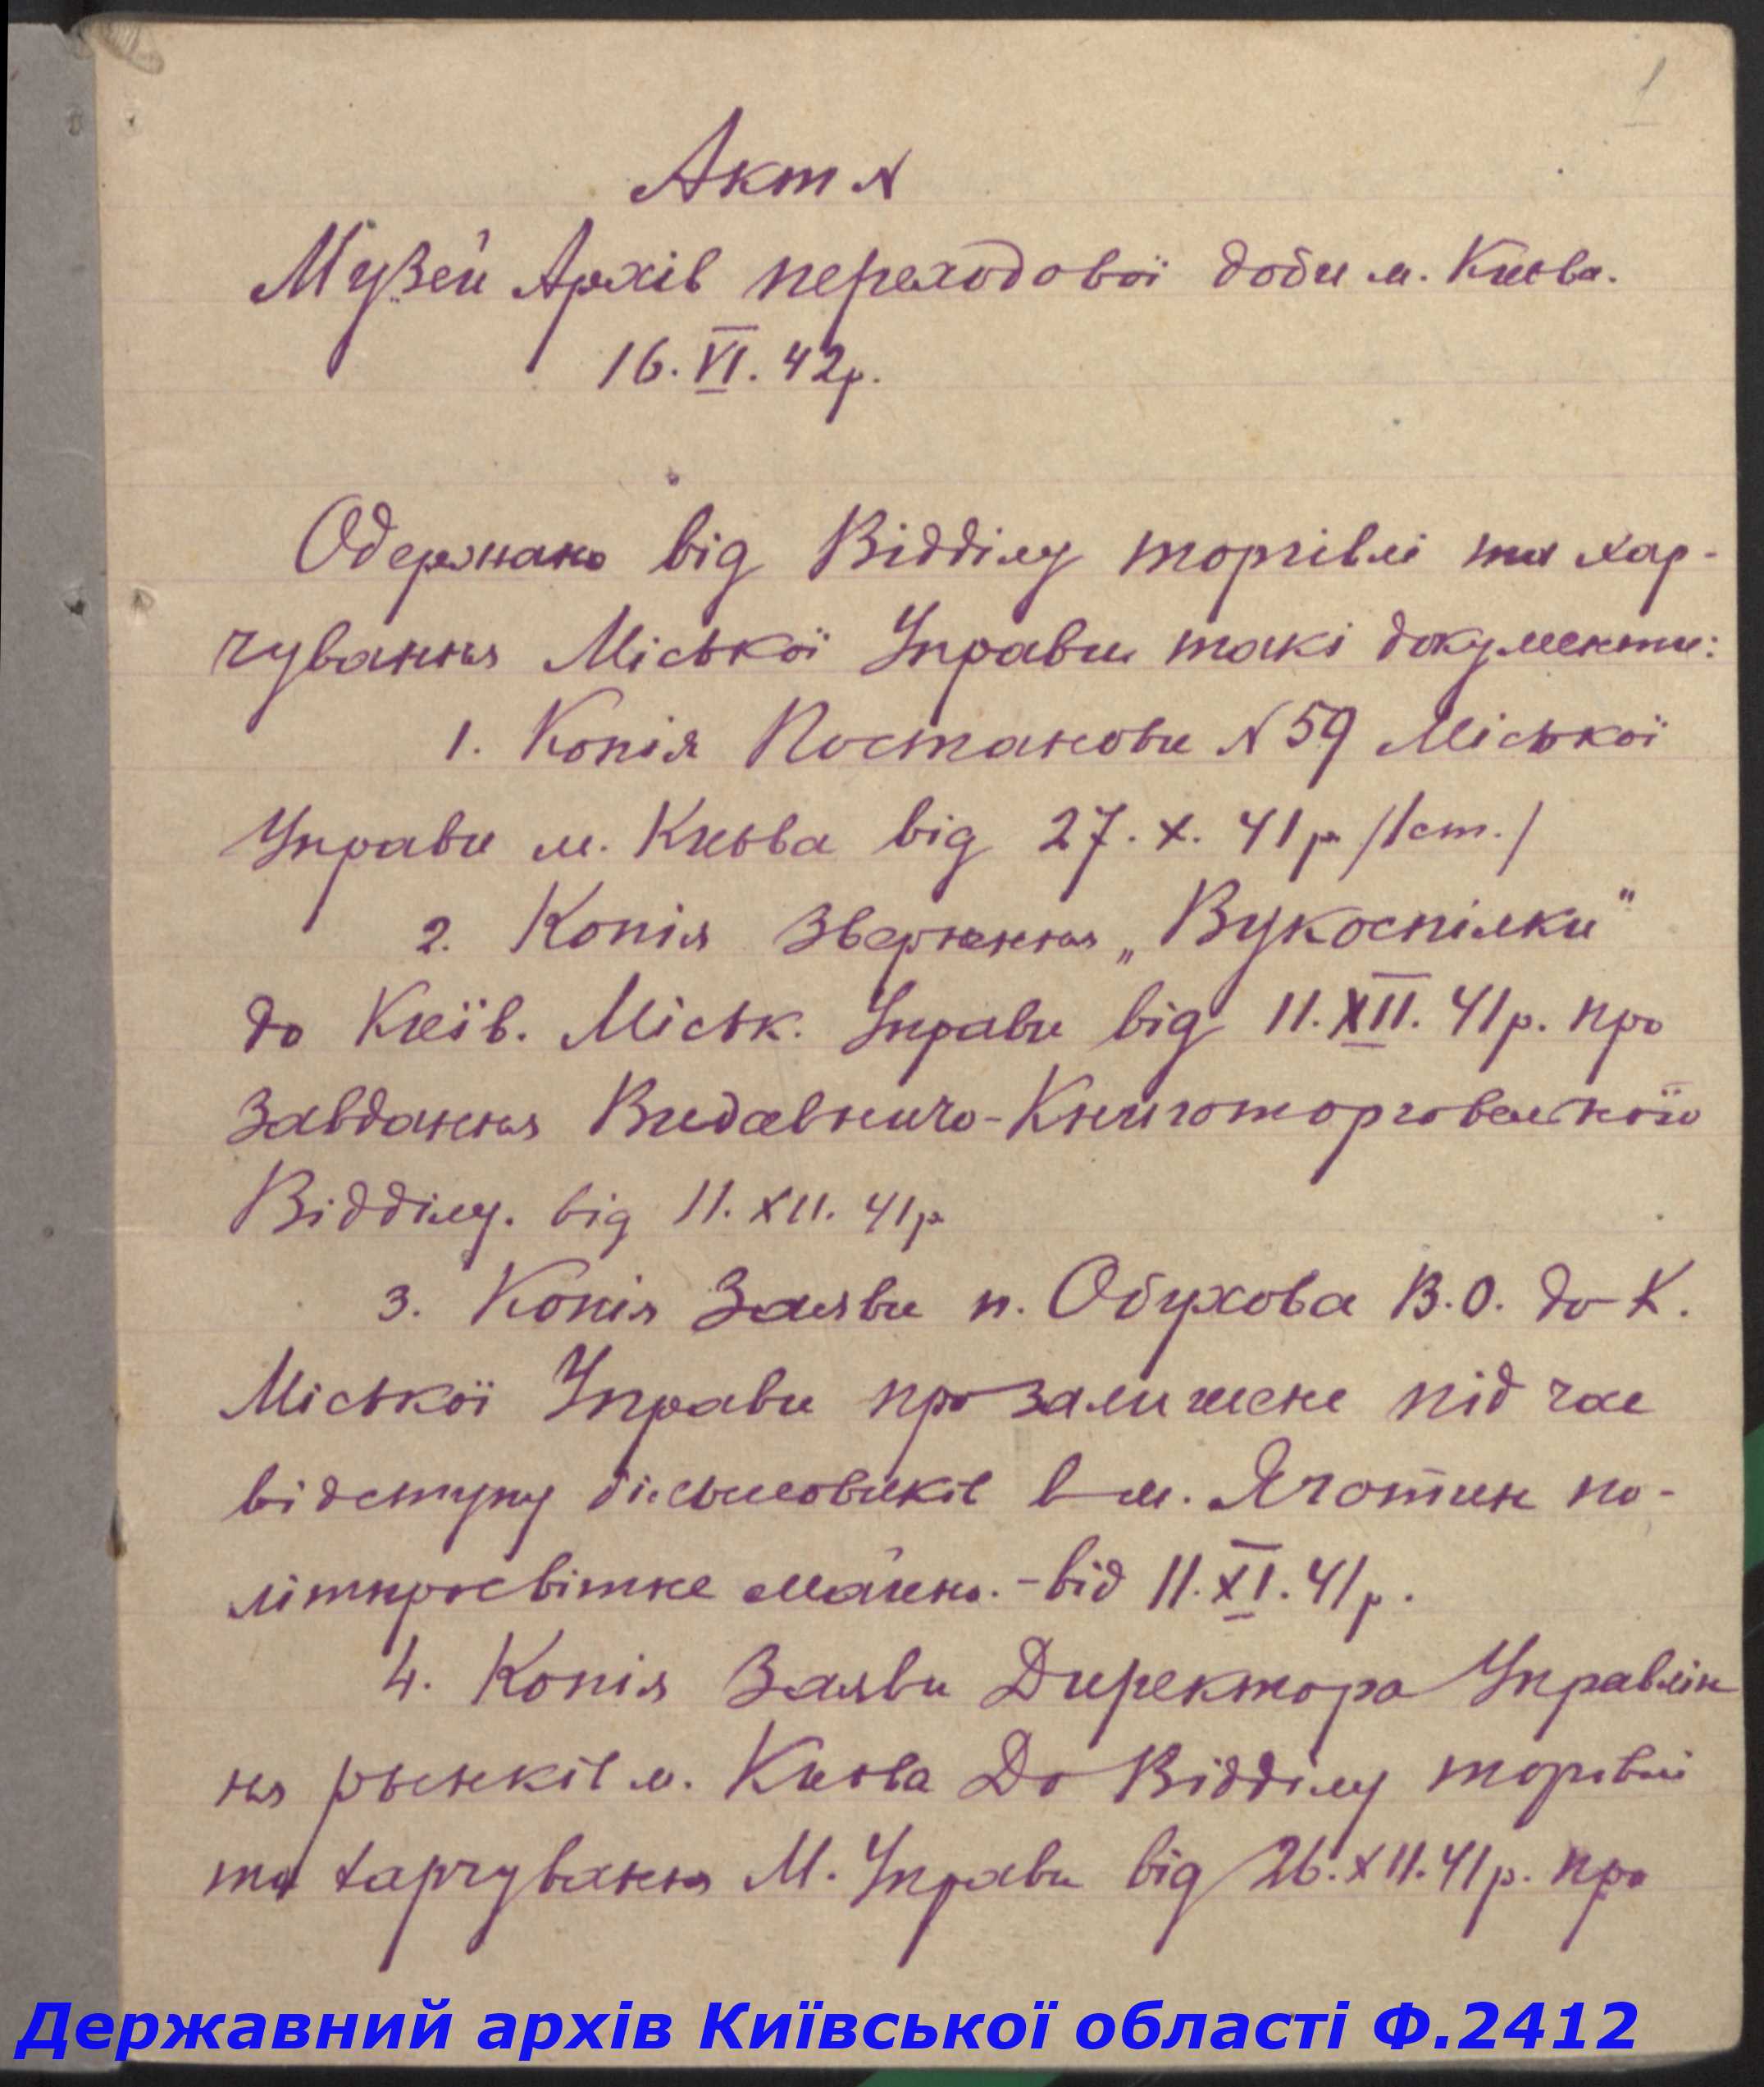 1
Акт №
Музей Архів переходової доби м. Києва.
16. VI. 42р.
Одержано від Відділу торгівлі та хар-
чування Міської Управи такі документи:
1. Копія Постанови № 59 Міської
Управи м. Києва від 27. X. 41р /1ст./
2. Копія Звернення „Вукоспілки"
до Київ. Міськ. Управи від 11. XII. 41р. про
Завдання Видавничо-Книготорговельного
Відділу. від 11. XII. 41р
3. Копія Заяви п. Обухова В.О. до К.
Міської Управи про залишене під час
відступу більшовиків в м. Яготин по-
літпросвітнє майно. - від 11. XI. 41р.
4. Копія Заяви Директора Управлін
ня рынків м. Києва До Відділу торгівлі
та харчування М. Управи від 26. XII. 41р. про
Державний архів Київської області Ф.2412